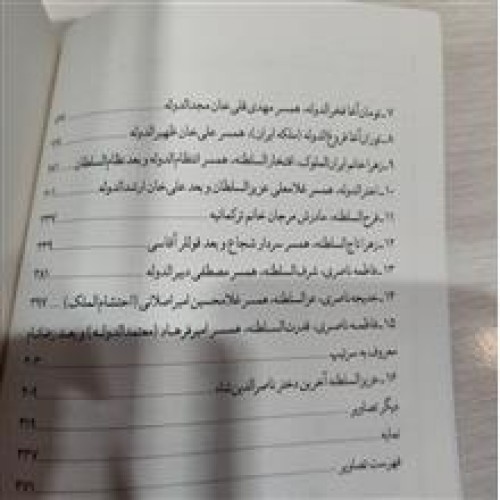 ۷_ تومان آغا فخرالدوله، همسر مهدی قلی خان مجدالدوله
۸_ توران آغا فروغ الدوله (ملکه ایران)، همسر علی خان ظهیرالدوله
۹_ زهرا خانم ایران الملوک، افتخار السلطنه، همسر انتظام الدوله و بعد نظام السلطان
۱۰_ اخترالدوله، همسر غلامعلی عزیز السلطان و بعد علی خان ارشدالدوله
۱۱_ فرح السلطنه، مادرش مرجان خانم ترکمانیه ۲۳۷
۱۲_ زهرا تاج السلطنه، همسر سردار شجاع و بعد قوللر آقاسی ۲۴۹
۱۳_ فاطمه ناصری، شرف السلطنه، همسر مصطفی دبیرالدوله ۳۸۱
۱۴_ خدیجه ناصری، عزالسلطنه، همسر غلامحسین امیراصلانی (احتشام الملک) ... ۳۹۷
۱۵_ فاطمه ناصری، قدرت السلطنه، همسر امیر فرهاد (معتمدالدوله) و بعد رضاخان
معروف به سرتیپ ۴۰۳
۱۶_ عزیز السلطنه آخرین دختر ناصرالدین شاه ۴۰۹
دیگر تصاویر ۴۱۹
نمایه ۴۳۷
فهرست تصاویر ۴۷۱